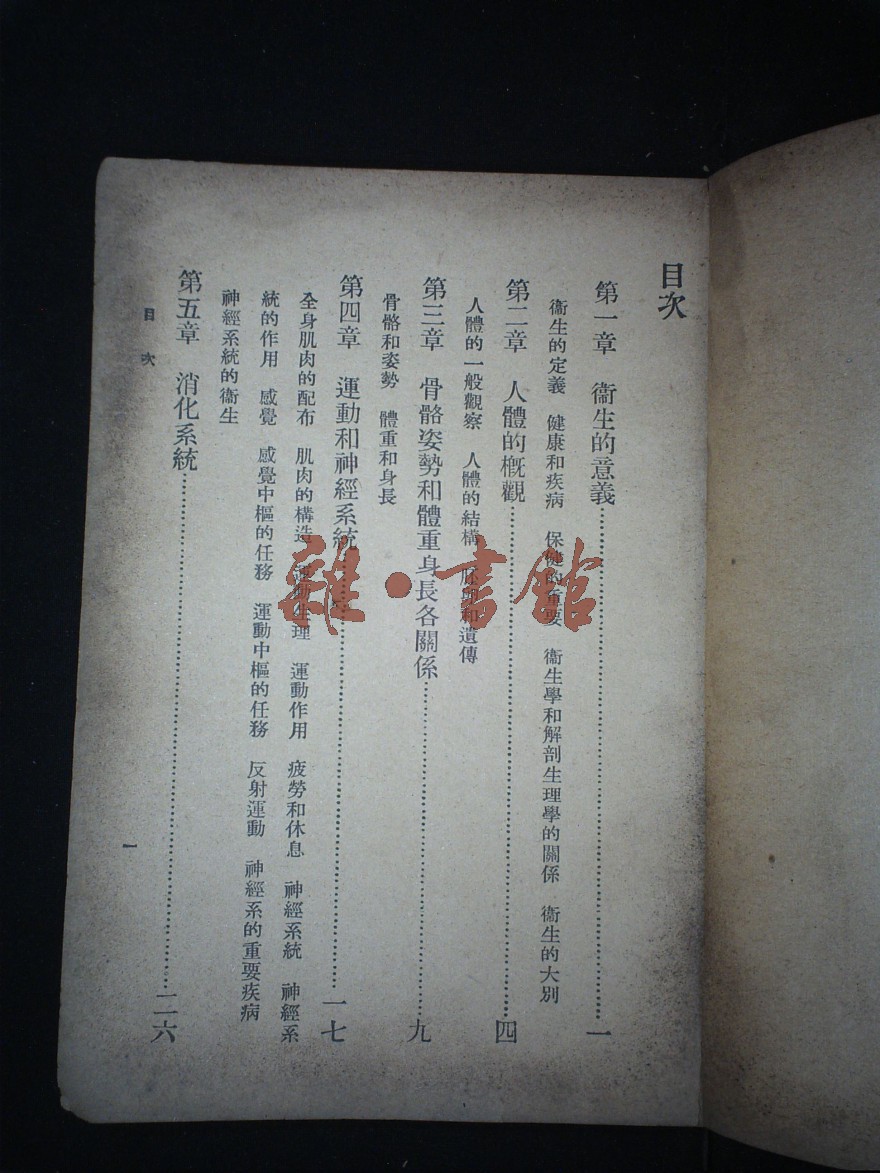 目次
第一章　衞生的意義…………一
衞生的定義　健康和疾病　保健的重要　衞生學和解剖生理學的關係　衞生的大別
第二章　人體的概觀…………四
人體的一般觀察　人體的結構　和遺傳
第三章　骨骼姿勢和體重身長各關係…………九
骨骼和姿勢　體重和身長
第四章　運動和神經系統…………一七
全身肌肉的配布　肌肉的構造　運動生理　運動作用　疲勞和休息　神經系統　神經系
統的作用　感覺　感覺中樞的任務　運動中樞的任務　反射運動　神經系的重要疾病
神經系統的衞生
第五章　消化系統…………二六
目次
一
雜·書館